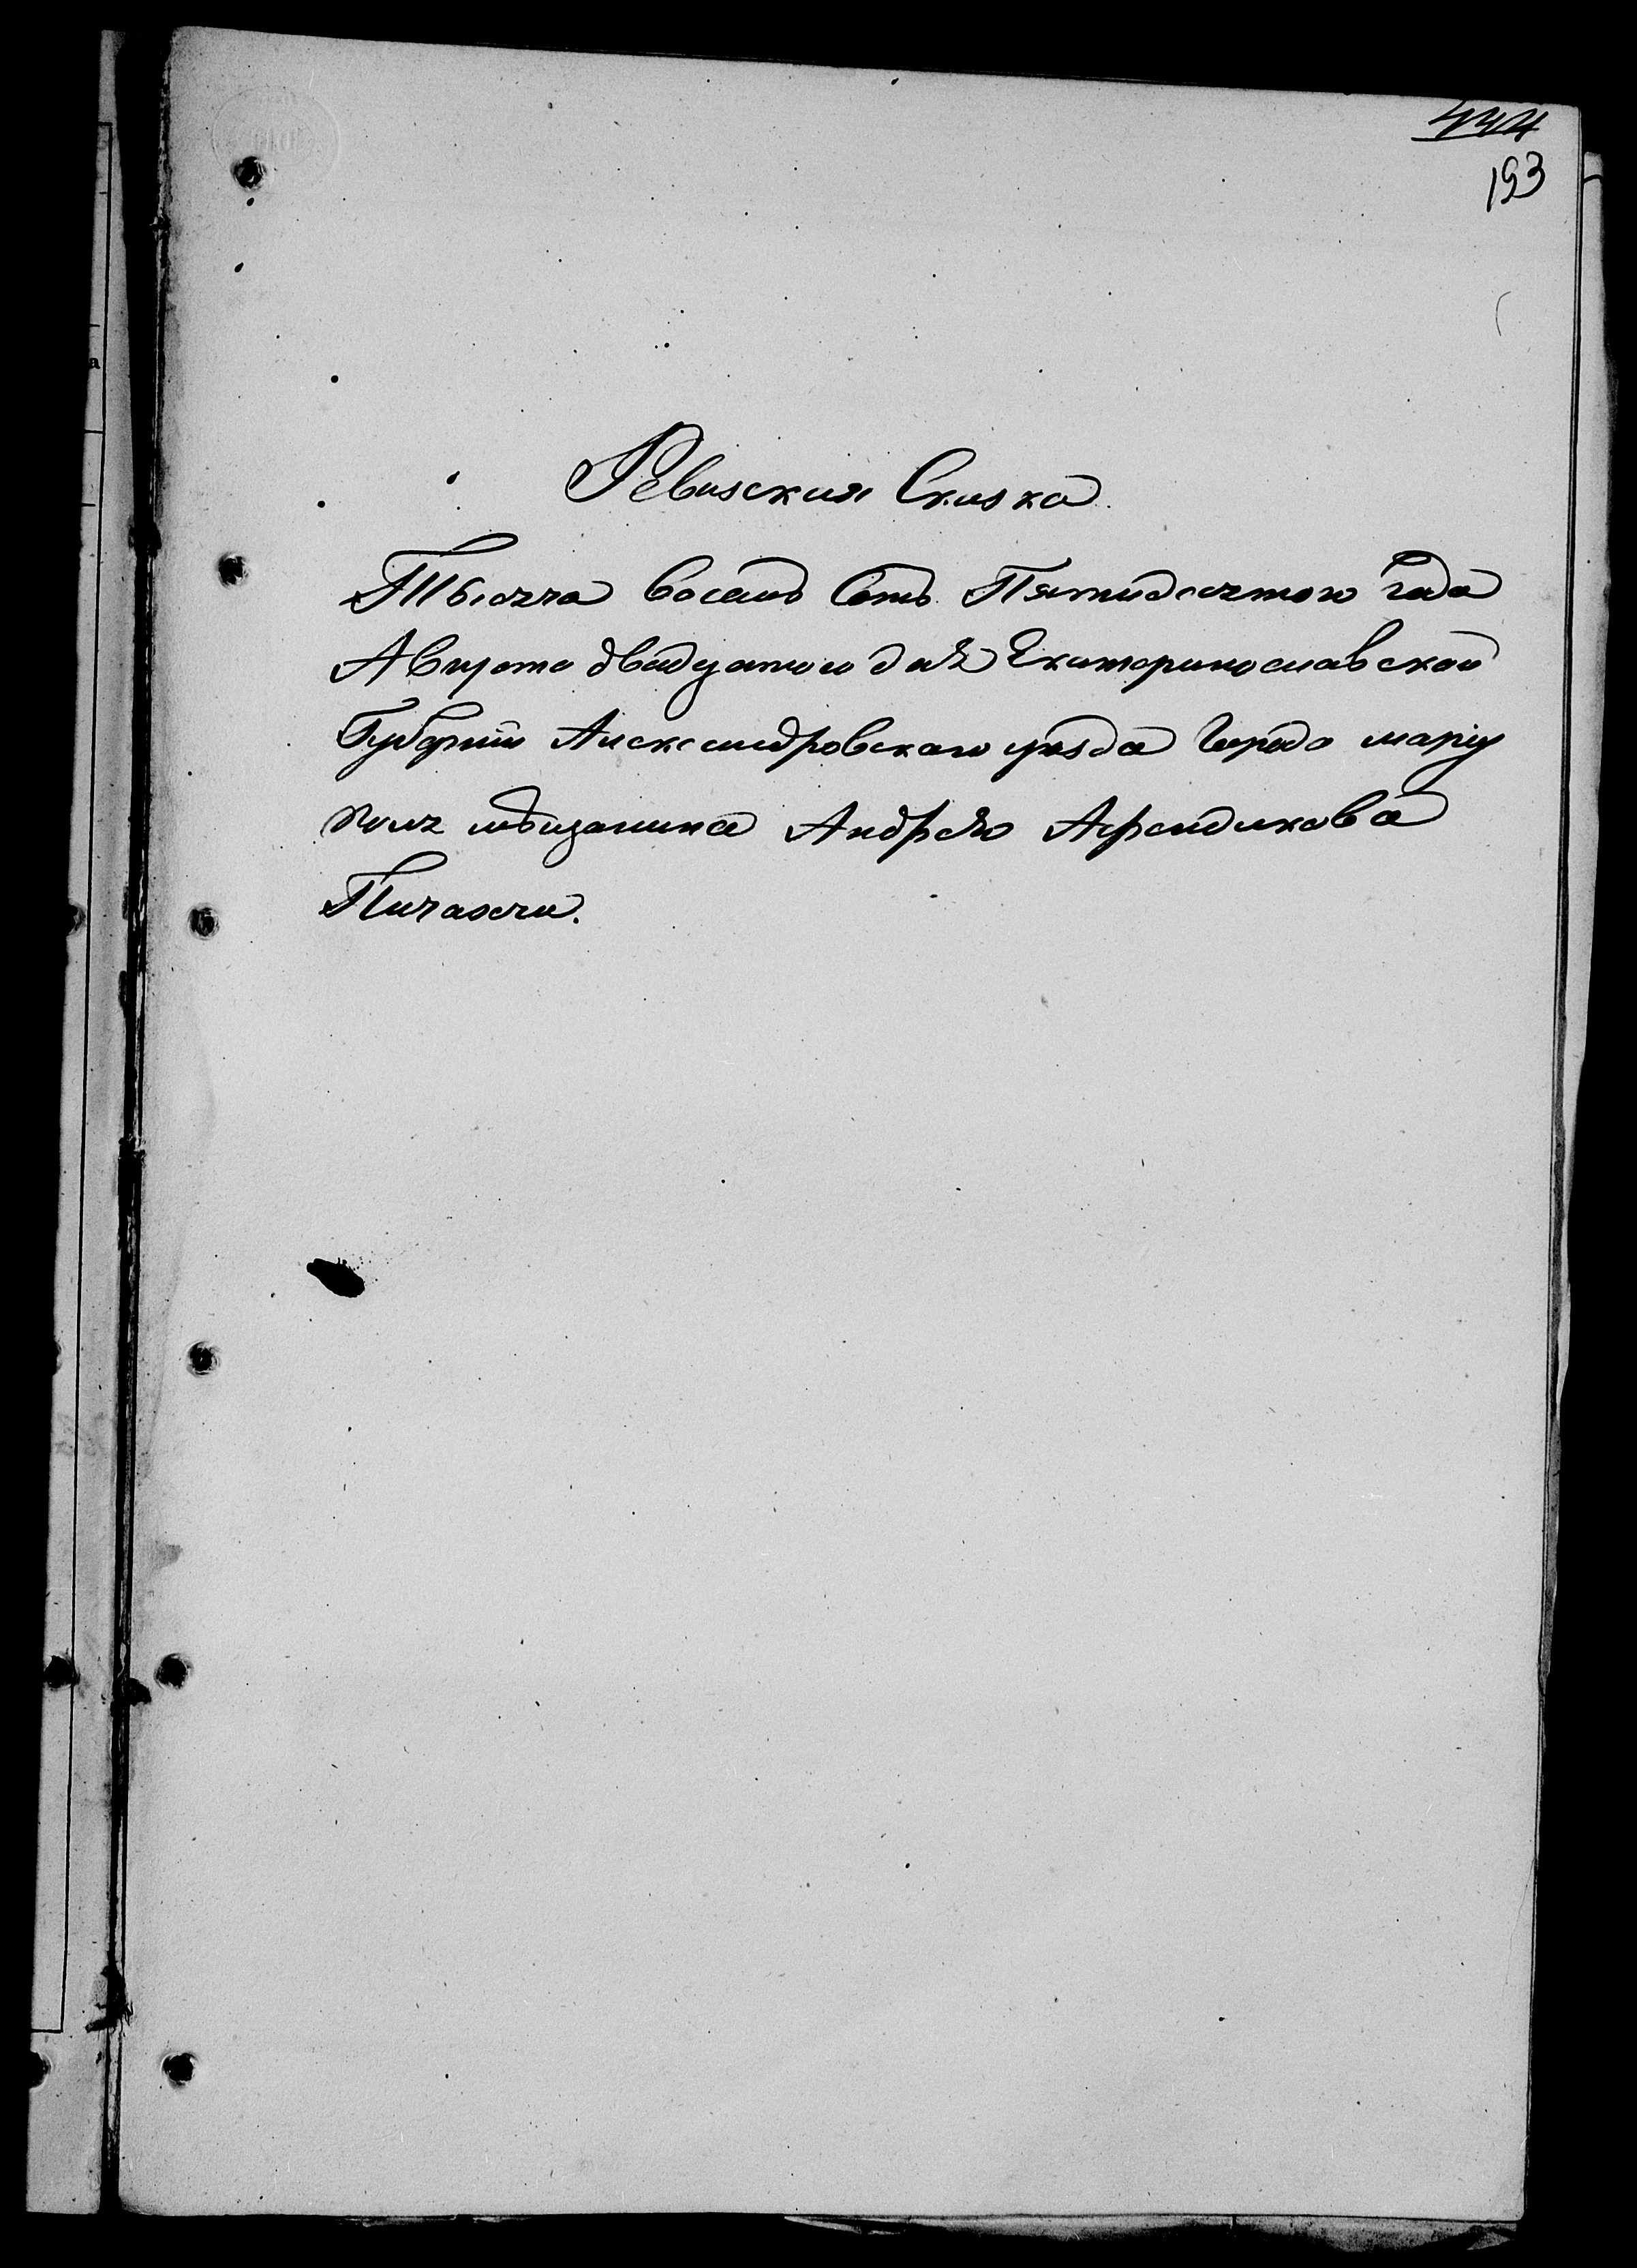 444
193
Ревизская Сказка
Тысяча восемь Сотъ Пятидесятого года
Августа двадцатого дня Екатеринославской
Губернiи Александровскаго уѣзда Города марiу
поля мѣщанина Андрѣя